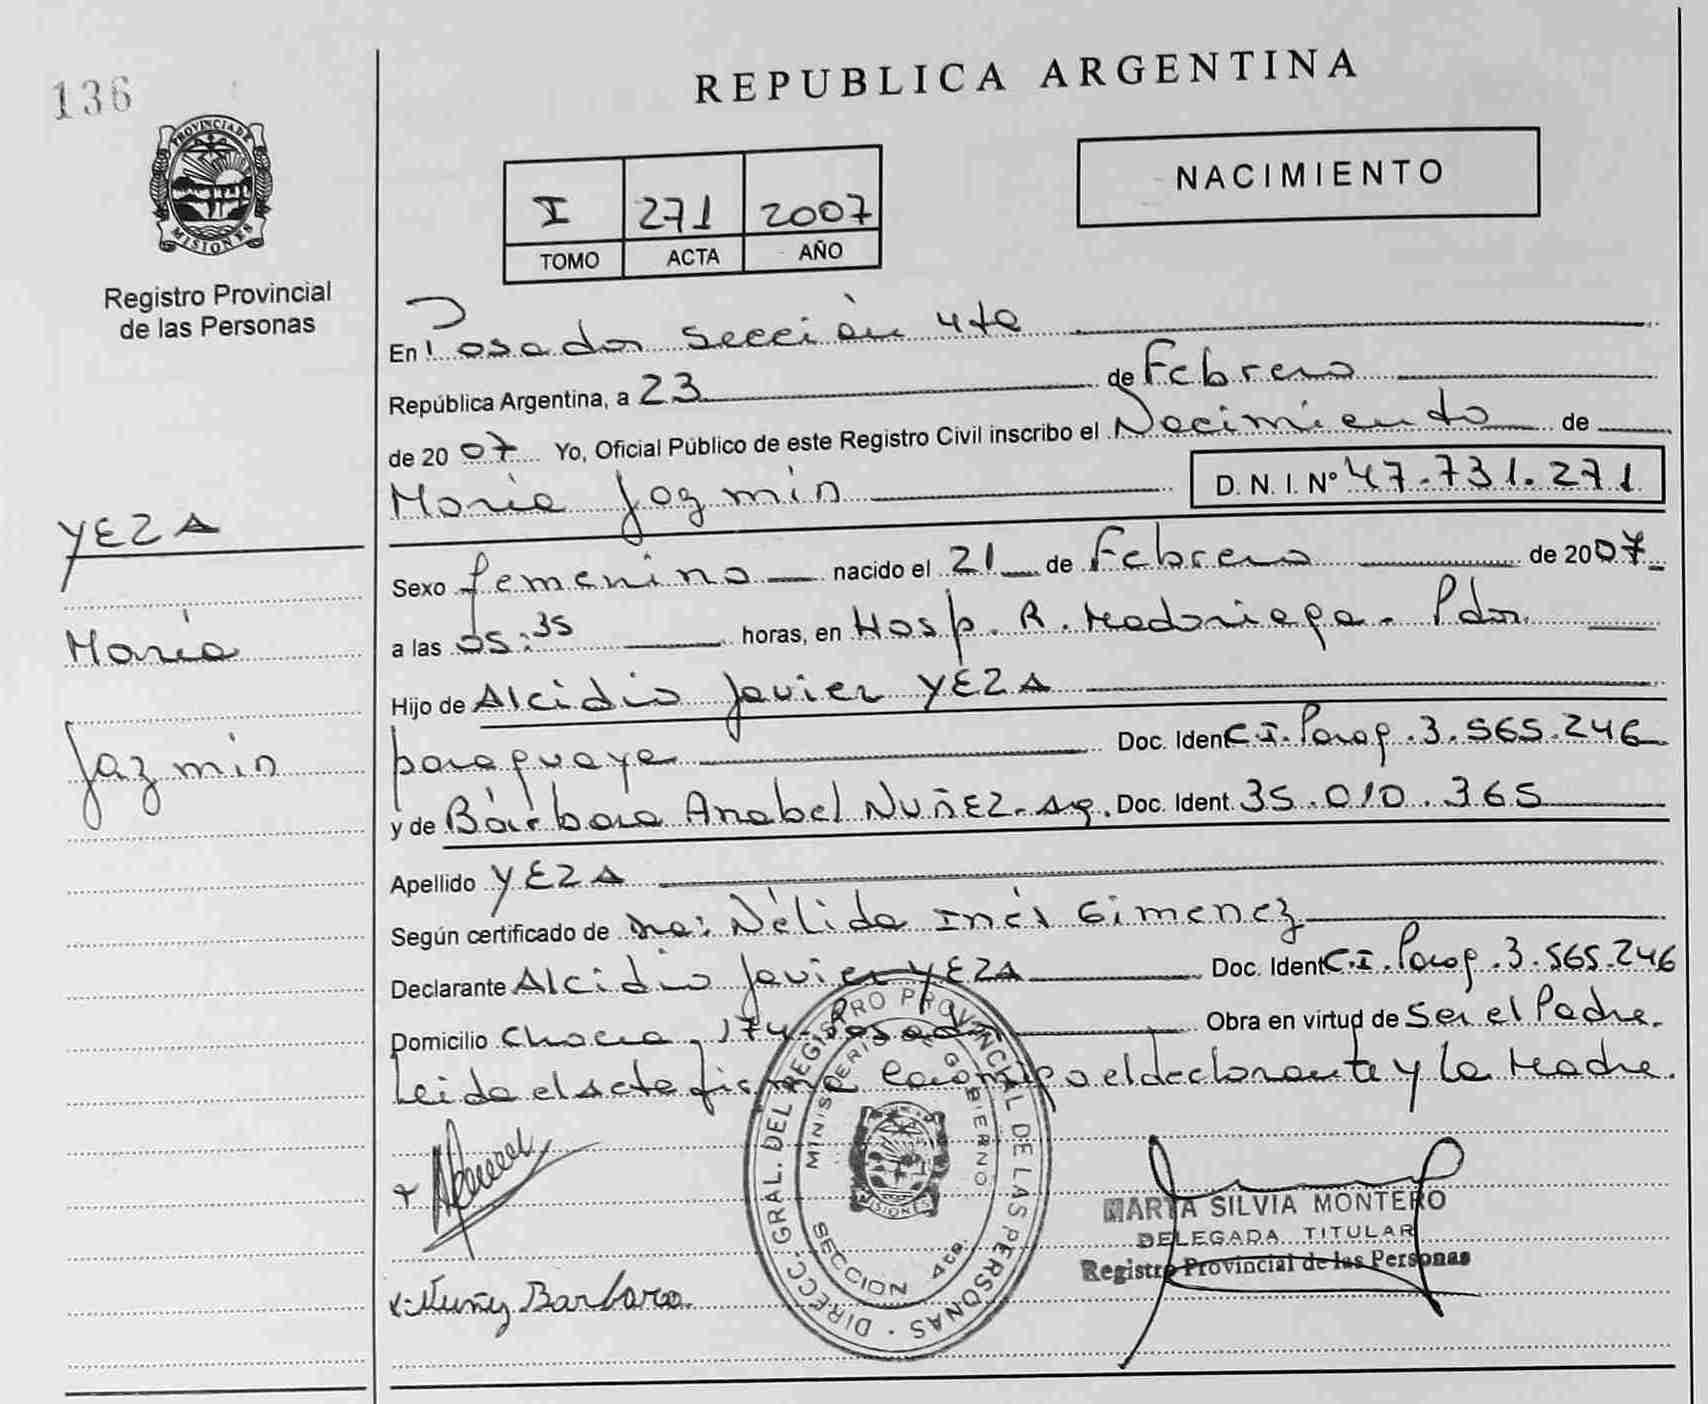 136
REPUBLICA ARGENTINA
PROVINCIA DE
MISIONES
Registro Provincial
de las Personas
NACIMIENTO
I 271 2007
TOMO ACTA AÑO
En Posadas Sección 4ta
República Argentina, a 23 de Febrero
de 2007 Yo, Oficial Público de este Registro Civil inscribo el Nacimiento de
María Jazmin D.N.I. Nº 47.731.271
YEZA
María
Jazmin
Sexo femenino nacido el 21 de Febrero de 2007
a las 05:35 horas, en Hosp. R. Madariaga. Pdas.
Hijo de Alcidio Javier YEZA
paraguaya Doc. Ident. C.I. Parag. 3.565.246
y de Bárbara Anabel NUÑEZ. Ag. Doc. Ident. 35.010.365
Apellido YEZA
Según certificado de Nélida Inés Gimenez
Declarante Alcidio Javier YEZA Doc. Ident. C.I. Parag. 3.565.246
Domicilio Chacra 174. Posadas Obra en virtud de Ser el Padre.
Leida el acta firma conmigo el declarante y la Madre.
DIRECC. GRAL. DEL REGISTRO PROVINCIAL DE LAS PERSONAS
MINISTERIO DE GOBIERNO
MISIONES
SECCION 4ta.
MARTA SILVIA MONTERO
DELEGADA TITULAR
Registro Provincial de las Personas
x. Nuñez Barbara.